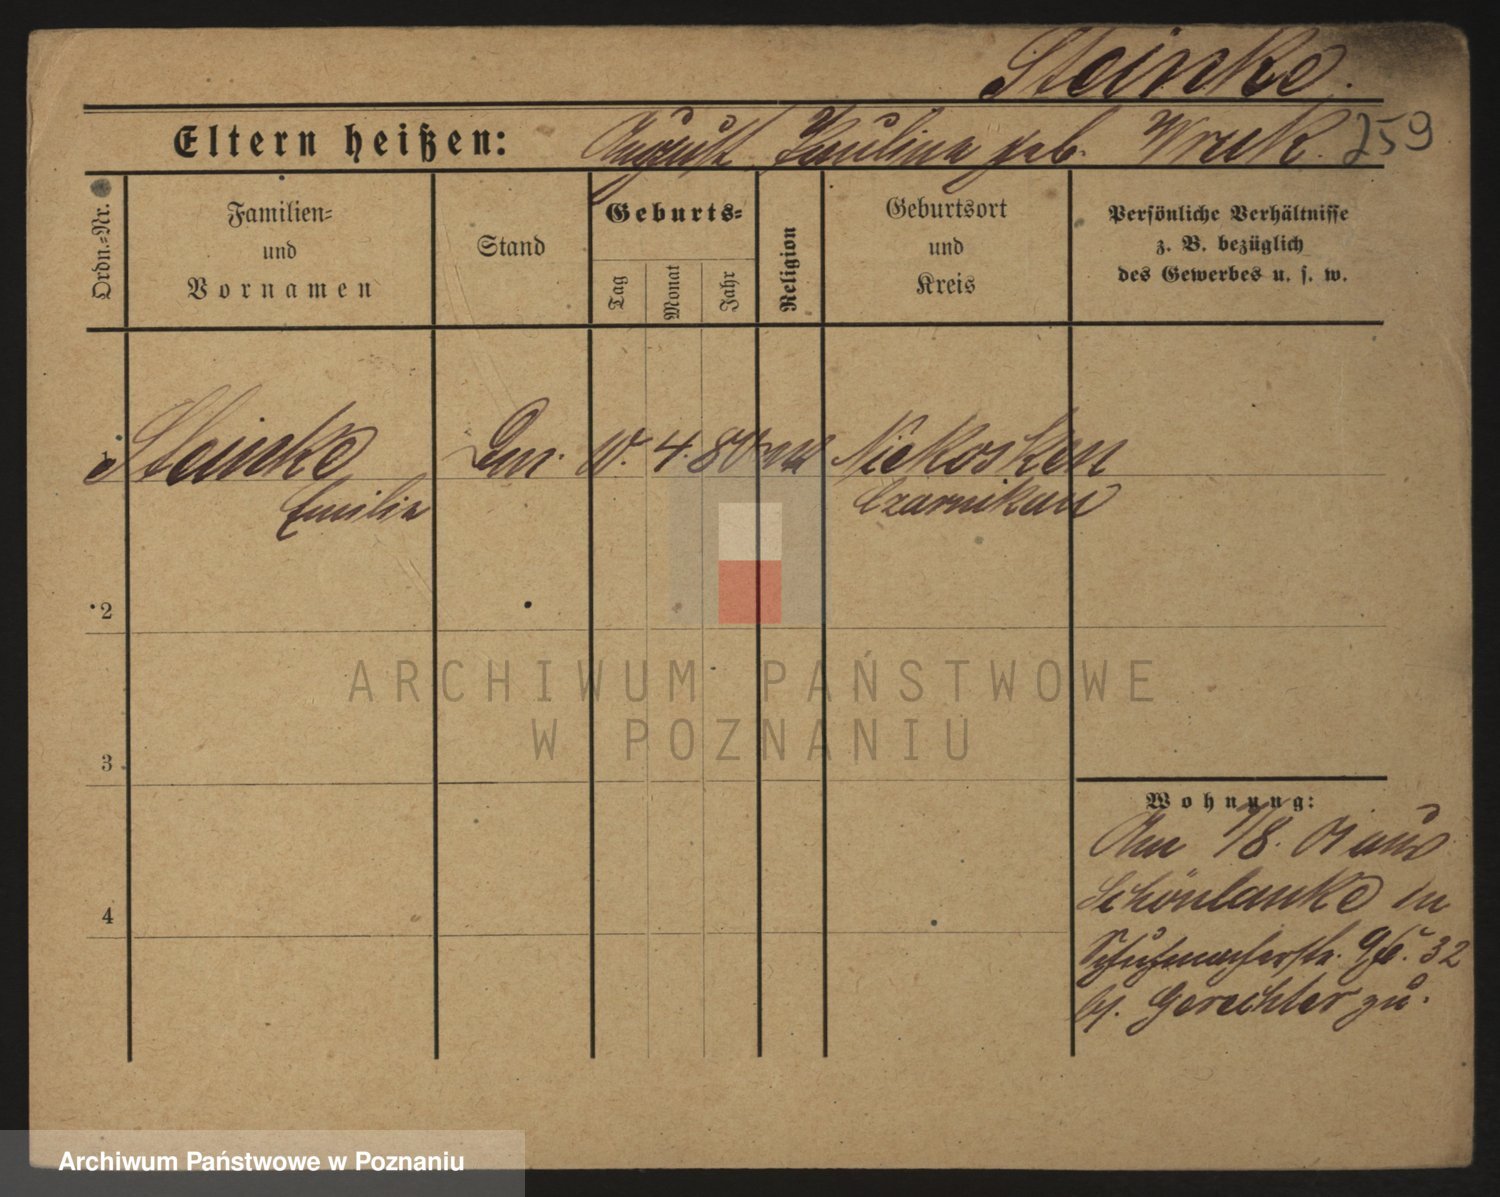 Steinke.
Eltern heißen: August Paulina geb. Wruk. 259
Ordn.=Nr.
Familien=
und
Vornamen
Stand
Geburts=
Tag
Monat
Jahr
Religion
Geburtsort
und
Kreis
Persönliche Verhältnisse
z. B. bezüglich
des Gewerbes u. s. w.
Steinke 4. 80 Niekosken
Emilie Czarnikau
2
3
4
ARCHIWUM PAŃSTWOWE
W POZNANIU
Wohnung:
Am 1/8. 01 aus
Schönlanke in
Schuhmacherstr. 32
bj. Gerechter zu.
Archiwum Państwowe w Poznaniu